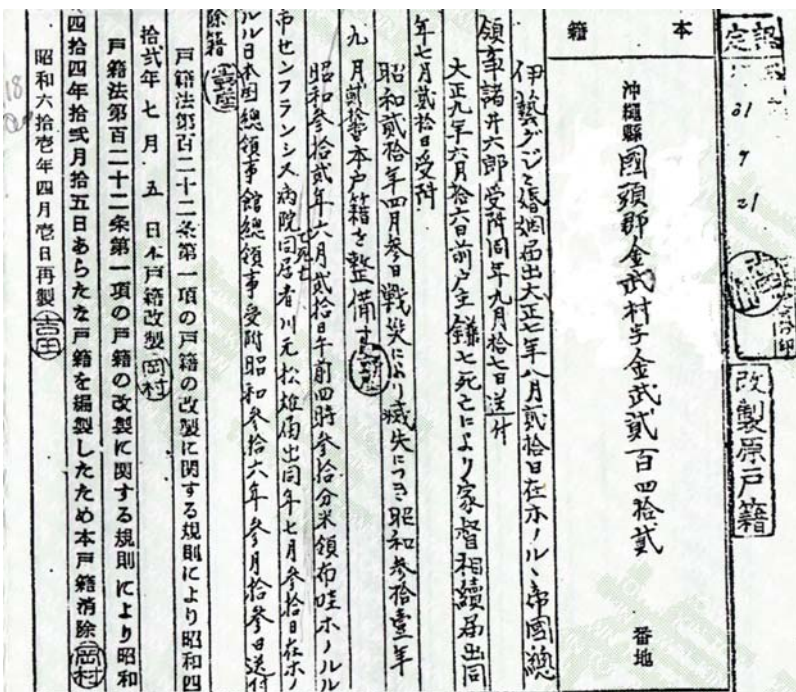 認定
31
7
21
改製原戸籍
本籍
沖縄縣國頭郡金武村字金武貳百四拾貳 番地
伊藝グジと婚姻届出大正七年八月貳拾日在ホノルヽ帝國總
領事諸井六郎受附同年九月拾七日送付
大正九年六月拾六日前戸主鎌七死亡により家督相續届出同
年七月貳拾日受附
昭和貳拾年四月参日戦災により滅失につき昭和参拾壹年
九月貳拾日本戸籍を整備する
昭和参拾貳年六月貳拾日午前四時参拾分米領布哇ホノルル
市センフランシス病院で死亡同居者川元松雄届出同年七月参拾日在ホノ
ルル日本国總領事館總領事受附昭和参拾六年参月拾参日送付
除籍
戸籍法第百二十二条第一項の戸籍の改製に関する規則により昭和四
拾弐年七月五日本戸籍改製 岡村
戸籍法第百二十二条第一項の戸籍の改製に関する規則により昭和
四拾四年拾弐月拾五日あらたな戸籍を編製したため本戸籍消除 岡村
昭和六拾壱年四月壱日再製 吉田
18